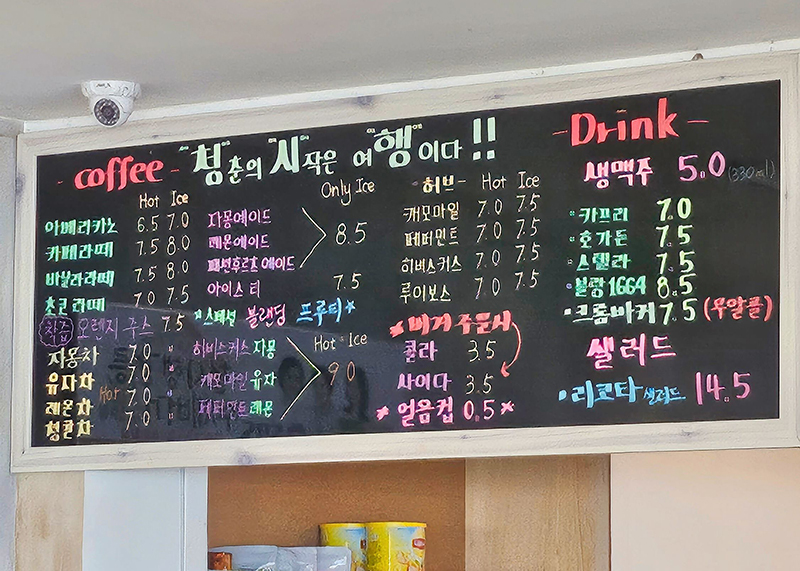 coffee
"청"춘의 "시"작은 여"행"이다!!
Hot Ice
아메리카노 6.5 7.0
카페라떼 7.5 8.0
바닐라라떼 7.5 8.0
초코라떼 7.0 7.5
착즙 오렌지 주스 7.5
자몽차 7.0 "
유자차 Hot 7.0 "
레몬차 7.0 "
청귤차 7.0 "
Only Ice
자몽에이드
레몬에이드 8.5
패션후르츠에이드
아이스티 7.5
*스페셜 블랜딩 프루티*
Hot · Ice
히비스커스 자몽
캐모마일 유자 9.0
페퍼민트 레몬
-허브- Hot Ice
캐모마일 7.0 7.5
페퍼민트 7.0 7.5
히비스커스 7.0 7.5
루이보스 7.0 7.5
*버거 주문시
콜라 3.5
사이다 3.5
*얼음컵 0.5*
-Drink-
생맥주 5.0 (330ml)
·카프리 7.0
·호가든 7.5
·스텔라 7.5
·블랑1664 8.5
·크롬바커 7.5 (무알콜)
샐러드
·리코타 샐러드 14.5